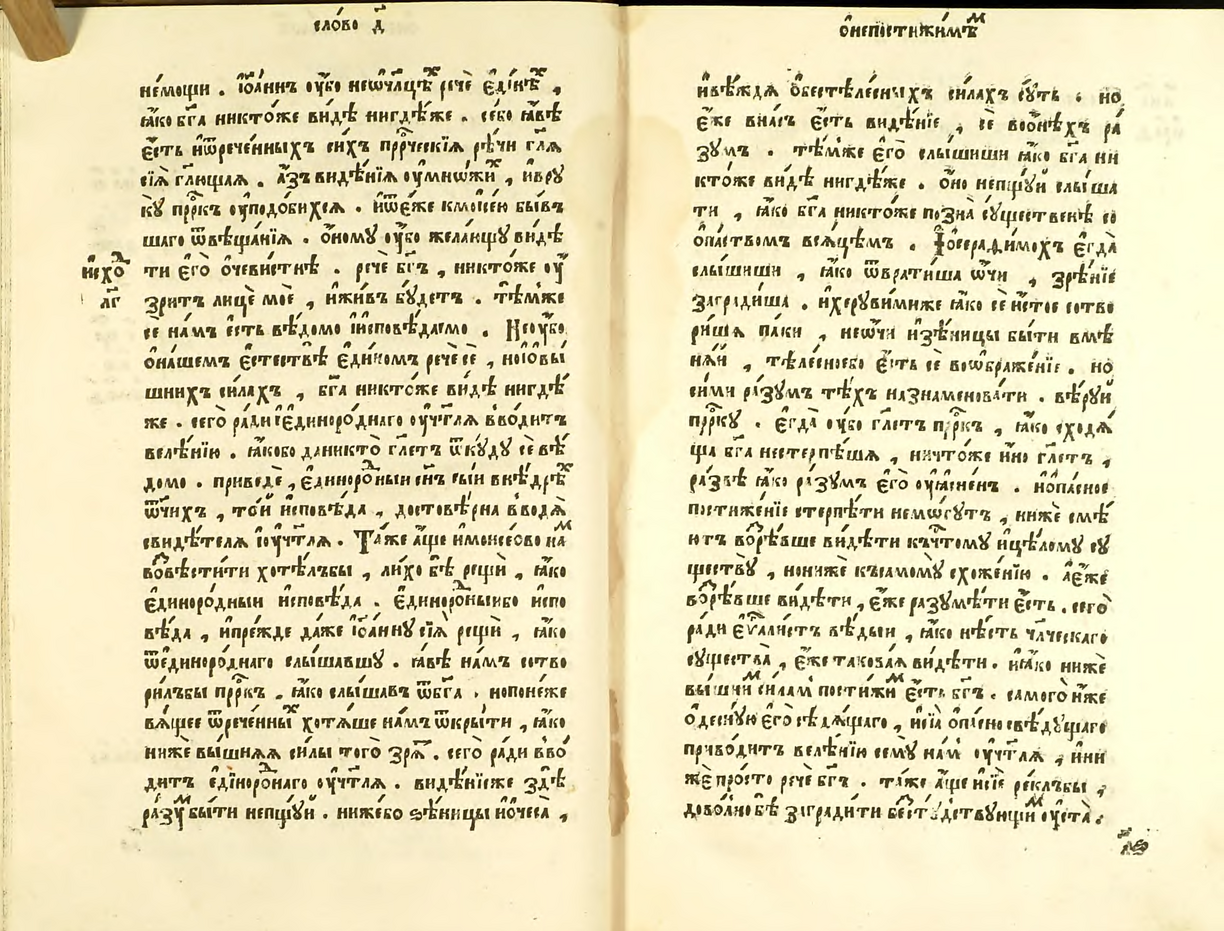 сло́во д҃
не́мощи . і҆ѡа́ннъ оу҆́бо неѡ҆чл҃цѣⷯ речѐ є҆ди́нѣⷯ ,
ꙗ҆́ко бг҃а никто́же ви́дѣ нигдѣ́же . се́бо ꙗ҆́вѣ
є҆́сть и҆ѿрече́нныхъ си́хъ прⷪ҇рческїѧ рѣ́чи гл҃ѧ
сїѧ̀ гл҃ющаѧ . а҆́зъ видѣ́нїѧ оу҆мно́жиⷯ , и҆вру
кꙋ̀ прⷪ҇ркъ оу҆подо́бихсѧ . и҆ѿє҆́же кмѡѵсе́ю бы́в
шаго ѿвѣща́нїѧ . ѻ҆номꙋ̀ оу҆́бо жела́ющꙋ ви́дѣ
ти є҆го̀ ѻ҆чеви́стнѣ . речѐ бг҃ъ , никто́же оу҆́
и҆схоⷣ
лг҃
зритъ лицѐ моѐ , и҆жи́въ бꙋ́детъ . тѣ́мже
се на́мъ є҆́сть вѣ́домо и҆и҆сповѣ́даемо . Не оу҆́бо
ѻ҆на́шемъ є҆стествѣ̀ є҆ди́номъ речѐ сѐ , но и҆ѻ҆вы́
шнихъ си́лахъ , бг҃а никто́же ви́дѣ нигдѣ́
же . сего̀ ра́ди і҆є҆диноро́днаго оу҆чт҃лѧ вво́дитъ
велѣ́нїю . ꙗ҆́кобо да никто̀ гл҃етъ ѿкꙋ́дꙋ сѐ вѣ́
домо . приведѐ , є҆диноро́ⷣныи сн҃ъ сы́и внѣ́дрѣⷯ
ѻ҆́тчихъ , то́й и҆сповѣ́да , достовѣ́рна вводѧ̀
свидѣ́телѧ і҆оу҆чт҃лѧ . Та́же а҆́ще и҆мѡѵсе́ово наⷨ
возвѣсти́ти хотѣ́лъбы , ли́хо бѣ̀ рещѝ , ꙗ҆́ко
є҆диноро́дныи и҆сповѣ́да . є҆диноро́ⷣныибо и҆спо
вѣ́да , и҆пре́жде да́же і҆ѡа́ннꙋ сїѧ̀ рещѝ , ꙗ҆́ко
ѿє҆диноро́днаго слы́шавшꙋ . ꙗ҆́вѣ на́мъ сотво
ри́лъбы прⷪ҇ркъ . ꙗ҆́ко слы́шавъ ѿбг҃а . но поне́же
вѧ́щее ѿрече́нныⷯ хотѧ́ше на́мъ ѿкры́ти , ꙗ҆́ко
нижѐ вы́шнѧѧ си́лы того̀ зрѧ́ⷮ . сего̀ ра́ди вво́
дитъ є҆диноро́ⷣнаго оу҆чт҃лѧ . видѣ́нїеже здѣ̀
ра́зꙋⷨ бы́ти непщꙋ́й . ниже́бо зѣ́ницы и҆ѻ҆чеса̀ ,
ѻ҆непости́жимѣⷨ
и҆вѣ́ждѧ ѻ҆безтѣле́сныхъ си́лахъ сꙋ́ть . но
є҆́же внасъ є҆́сть видѣ́нїе , сѐ воо́нѣхъ ра́
зꙋмъ . тѣ́мже є҆гда̀ слы́шиши ꙗ҆́ко бг҃а ни
кто́же ви́дѣ нигдѣ́же . ѻ҆но̀ непщꙋ́й слы́ша
ти , ꙗ҆́ко бг҃а никто́же позна̀ сꙋ́щественѣ со
ѻ҆па́ствомъ всѧ́цѣмъ . І҆ѻ҆серафи́мохъ є҆гда̀
слы́шиши , ꙗ҆́ко ѿврати́ша ѻ҆́чи , зрѣ́нїе
загради́ша . и҆херꙋви́миже ꙗ҆́ко сѐ и҆́стое сотво
ри́шѧ па́ки , неѻ҆́чи и҆зѣ́ницы бы́ти вмѣ
нѧ́й , тѣле́сноебо є҆́сть сѐ воѡ҆браже́нїе . но
си́ми ра́зꙋмъ тѣ́хъ назнаменова́ти . вѣ́рꙋй
прⷪ҇ркꙋ . є҆гда̀ оу҆́бо гл҃етъ прⷪ҇ркъ , ꙗ҆́ко сходѧ́
ща бг҃а нестерпѣ́шѧ , ничто́же и҆́но гл҃етъ ,
ра́звѣ ꙗ҆́ко ра́зꙋмъ є҆го̀ оу҆ꙗ҆сне́нъ . и҆ѻ҆па́сное
постиже́нїе стерпѣ́ти немо́гꙋтъ , нижѐ смѣ́
ютъ возрѣ́вше ви́дѣти къчи́стомꙋ и҆цѣ́ломꙋ сꙋ
ществꙋ̀ , но нижѐ къса́момꙋ схожѐнїю . а҆є҆́же
возрѣ́вше ви́дѣти , є҆́же разꙋмѣ́ти є҆́сть . сего̀
ра́ди є҆ѵⷢ҇али́стъ вѣ́дыи , ꙗ҆́ко нѣ́сть чл҃ческаго
сꙋщества̀ , є҆́же такова́ѧ ви́дѣти . и҆ꙗ҆́ко нижѐ
вы́шниⷨ си́ламъ пости́жиⷨ є҆́сть бг҃ъ . самого̀ и҆́же
ѻ҆деснꙋ́ю є҆го̀ сѣдѧ́щаго , и҆сїѧ̀ ѻ҆па́сно свѣ́дꙋщаго
приво́дитъ велѣ́нїю семꙋ̀ на́мъ оу҆чт҃лѧ , и҆ни
жѐ про́сто речѐ бг҃ъ . та́же а҆́ще и҆сїѐ ре́клъбы ,
дово́лно бѣ̀ загради́ти безстꙋ́дствꙋющиⷨ оу҆ста̀ .